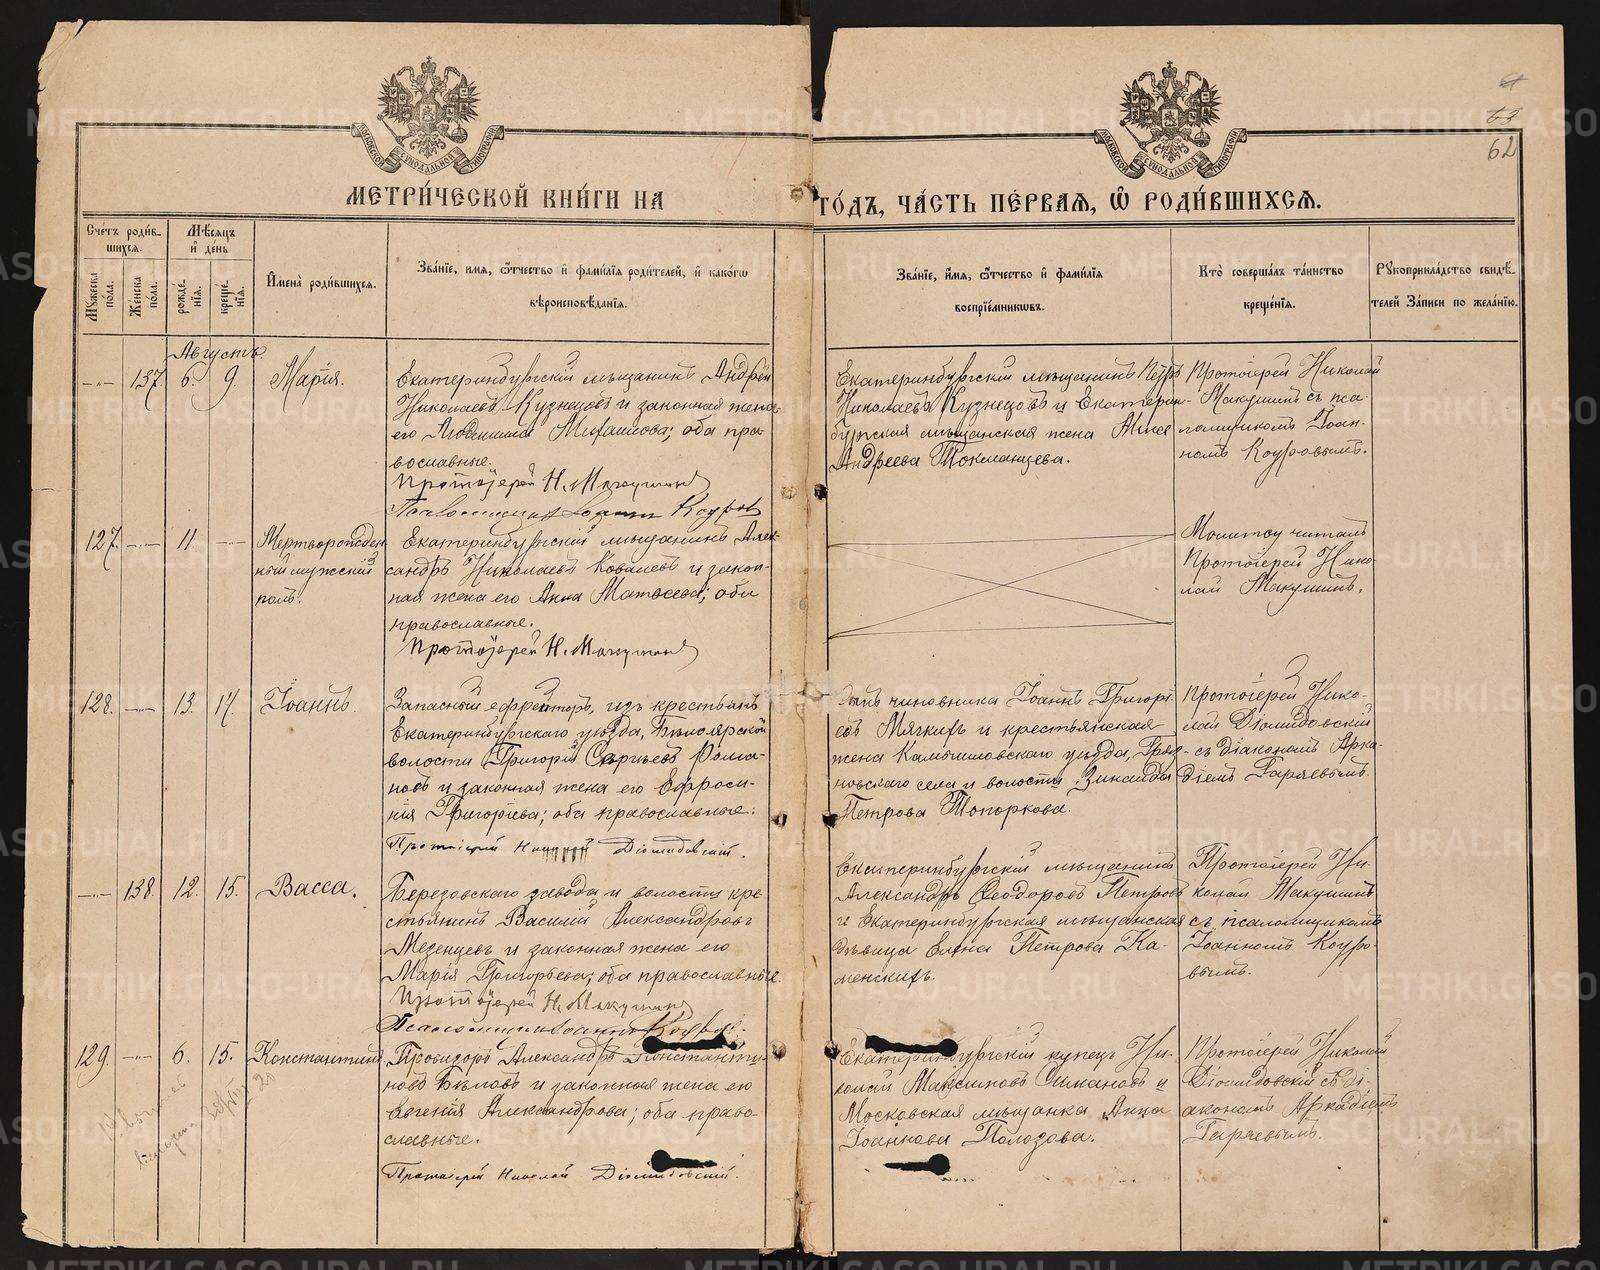 МЕТРИ́ЧЕСКОЙ КНИ́ГИ НА ГО́ДЪ, ЧА́СТЬ ПЕ́РВАѦ, Ѽ РОДИ́ВШИХСѦ.
62
МОСКОВСКОЙ СУНОДАЛЬНОЙ ТИПОГРАФІИ
МОСКОВСКОЙ СУНОДАЛЬНОЙ ТИПОГРАФІИ
Сче́тъ роди́в-
шихсѧ.
Мѣ́сяцъ
и҆ де́нь
Мꙋ́жеска пола.
Же́нска пола.
рожде́-
нїѧ.
креще́-
нїѧ.
И҆мена̀ роди́вшихсѧ.
Зва́нїе, имѧ, ѿтчество и҆ фами́лїѧ роди́телей, и҆ како́гѡ
вѣроисповѣ́данїѧ.
Зва́нїе, и҆́мѧ, ѿтчество и҆ фами́лїѧ
воспрїе́мникѡвъ.
Кто̀ соверша́лъ та́инство
креще́нїѧ.
Рꙋкоприкла́дство свидѣ́-
телей За́писи по жела́нїю.
Августъ
137 6. 9. Марія.
Екатеринбургскій мѣщанинъ Андрей
Николаевъ Кузнецовъ и законная жена
его Людмила Михаилова; оба пра-
вославные.
Протоіерей Н. Макушинъ
Псаломщикъ Іоаннъ Коуровъ
Екатеринбургскій мѣщанинъ Петръ
Николаевъ Кузнецовъ и Екатерин-
бургская мѣщанская жена
Андреева Токманцева.
Протоіерей Николай
Макушинъ съ пса-
ломщикомъ Іоан-
номъ Коуровымъ.
127. 11. Мертворожден-
ный мужескій
полъ.
Екатеринбургскій мѣщанинъ Алек-
сандръ Николаевъ Ковалевъ и закон-
ная жена его Анна Матвеева; оба
православные.
Протоіерей Н. Макушинъ
Молитву читалъ
Протоіерей Нико-
лай Макушинъ.
128. 13. 14. Іоаннъ.
Запасный ефрейторъ, изъ крестьянъ
Екатеринбургскаго уѣзда, Бѣлоярской
волости Григорій Сергѣевъ Рома-
новъ и законная жена его Ефроси-
нія Григоріева; оба православные.
Протоіерей Николай Діомидовскій.
Сынъ чиновника Іоаннъ Григорі-
евъ Мягкихъ и крестьянская
жена Камышловскаго уѣзда, Гряз-
новскаго села и волости Зинаида
Петрова Топоркова.
Протоіерей Нико-
лай Діомидовскій
съ діакономъ Арка-
діемъ Гаряевымъ.
138. 12. 15. Васса.
Березовскаго завода и волости кре-
стьянинъ Василій Александровъ
Мезенцевъ и законная жена его
Марія Григорьева; оба православные.
Протоіерей Н. Макушинъ
Псаломщикъ Іоаннъ Коуровъ.
Екатеринбургскій мѣщанинъ
Александръ Ѳеодоровъ Петровъ
и Екатеринбургская мѣщанская
дѣвица Елена Петрова Ка-
менскихъ.
Протоіерей Ни-
колай Макушинъ
съ псаломщикомъ
Іоанномъ Коуро-
вымъ.
129. 6. 15. Константинъ
Провизоръ Александръ Константи-
новъ Бѣловъ и законная жена его
Евгенія Александрова; оба право-
славные.
Протоіерей Николай Діомидовскій.
Екатеринбургскій купецъ Ни-
колай Максимовъ Симановъ и
Московская мѣщанка Анна
Іоаннова Полозова.
Протоіерей Николай
Діомидовскій съ ді-
акономъ Аркадіемъ
Гаряевымъ.
METRIKI.GASO-URAL.RU